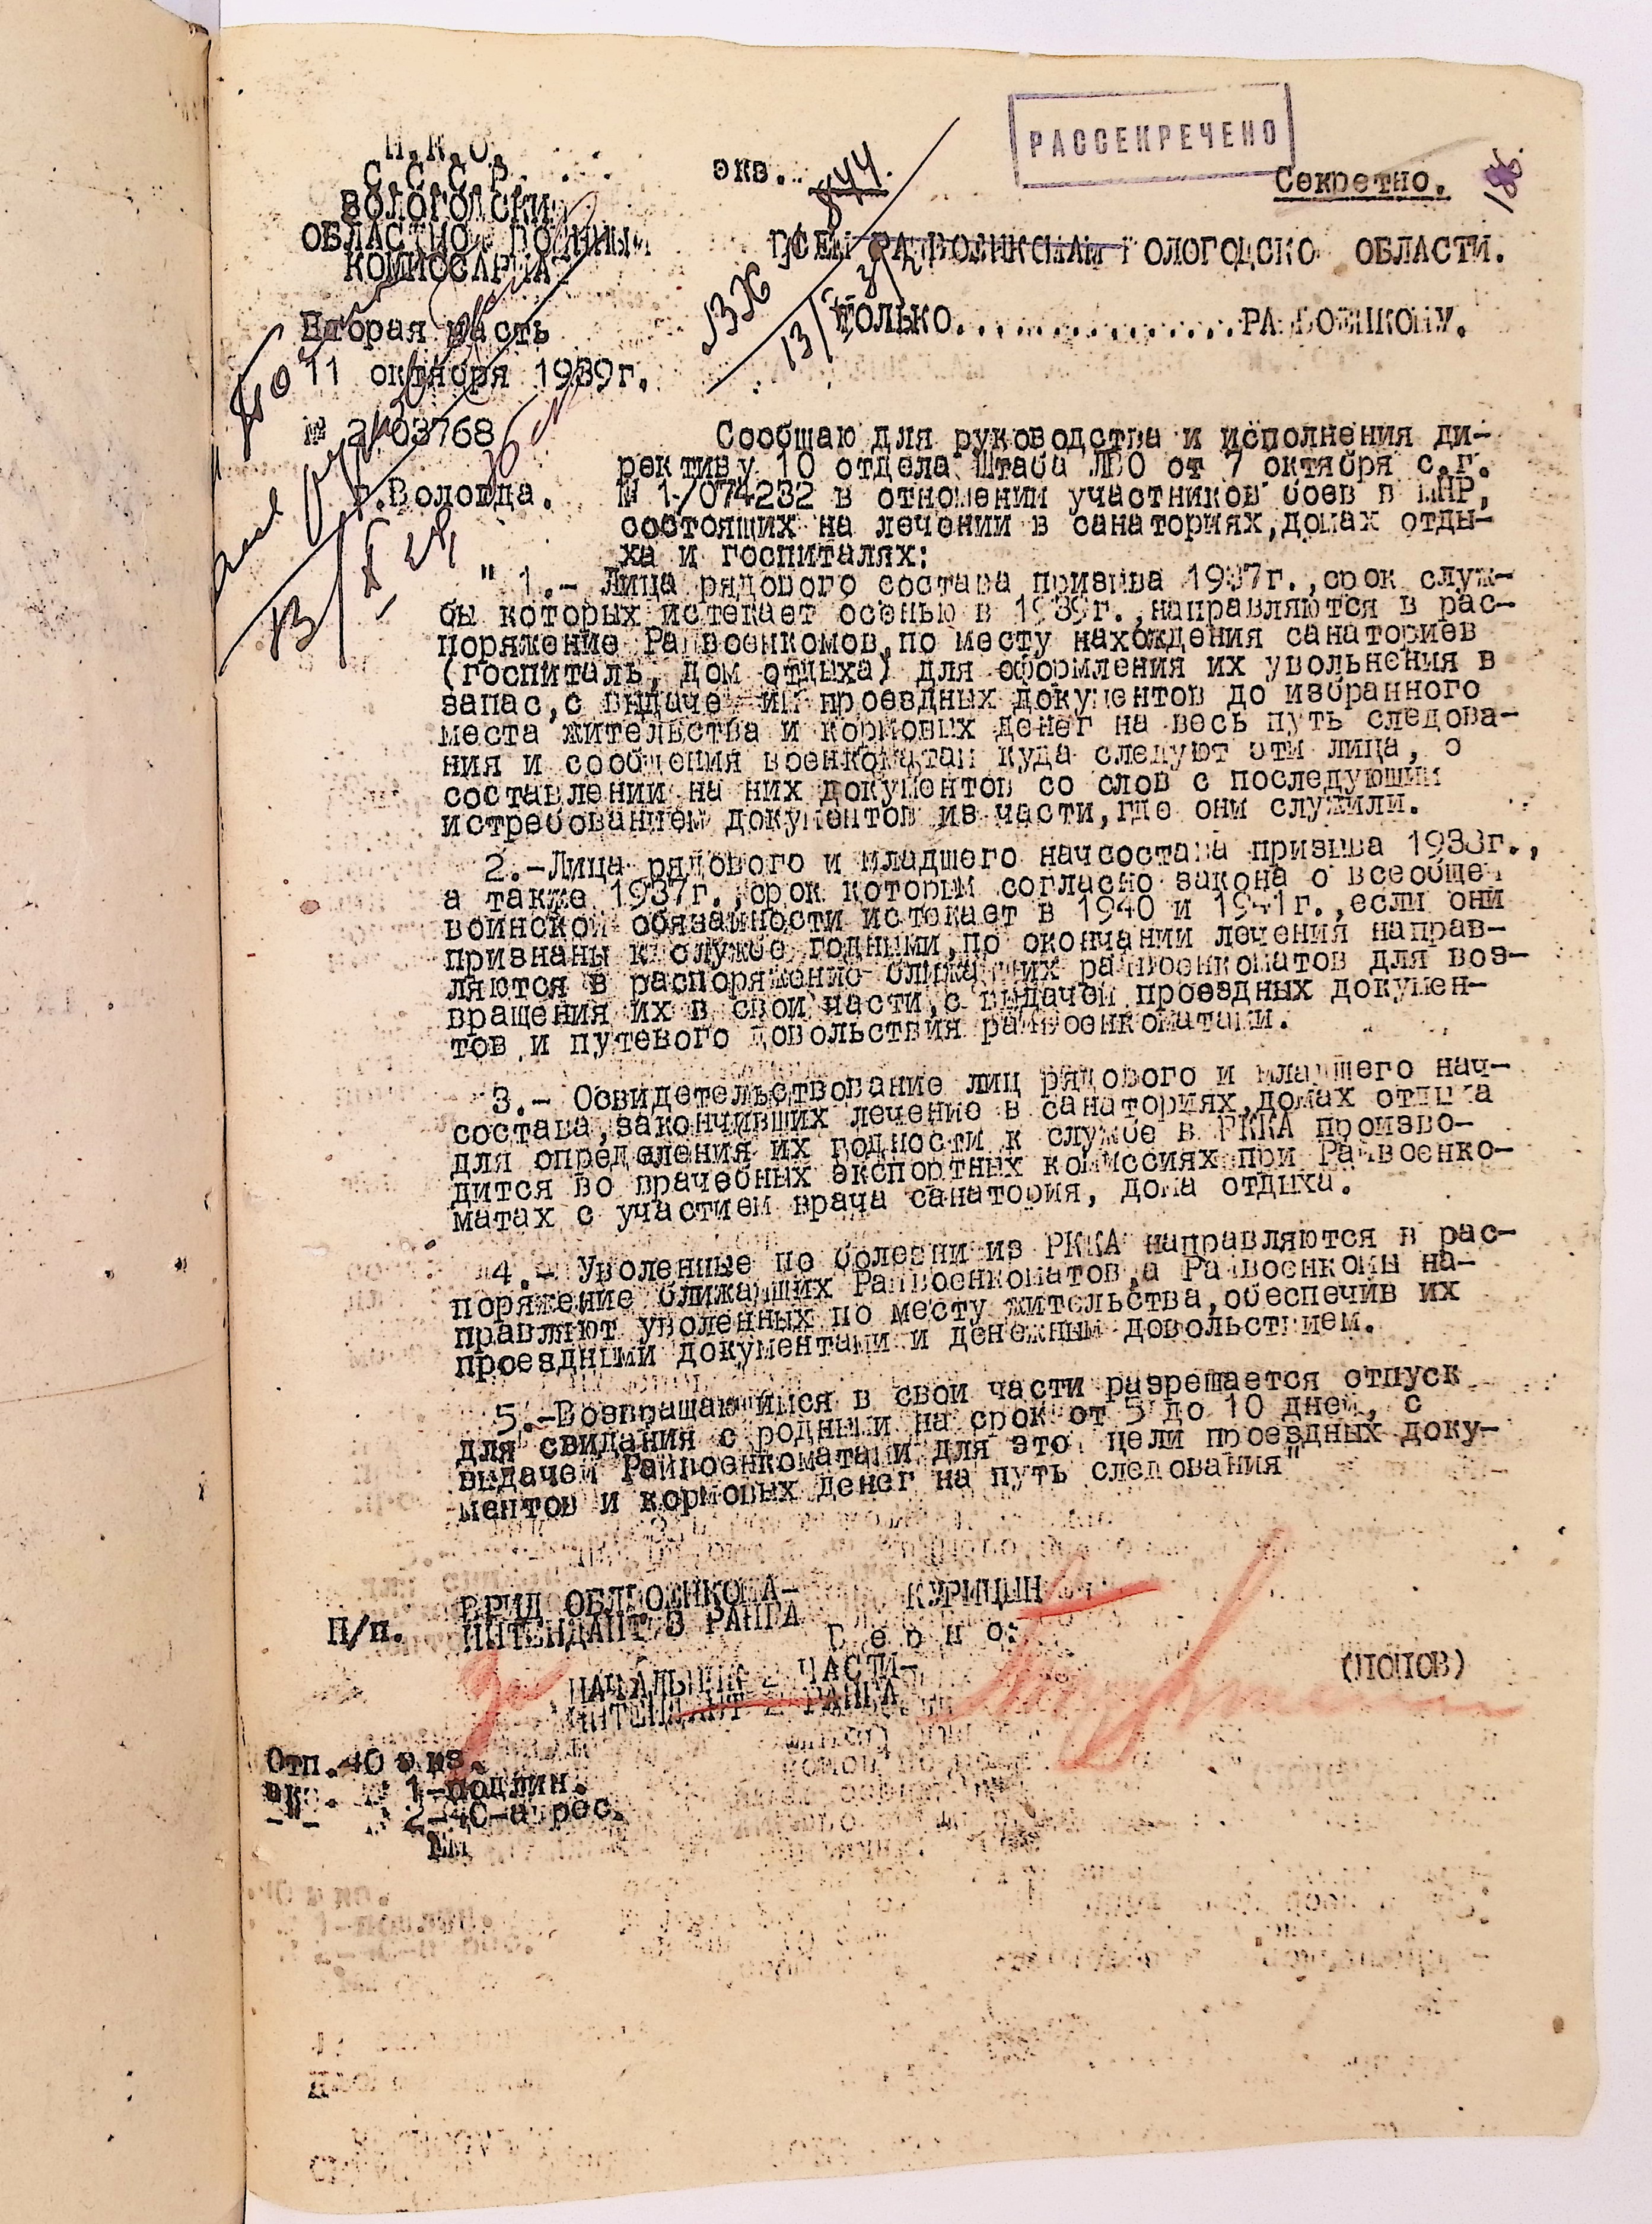 Н.К.О.
С.С.С.Р.
ВОЛОГОДСКИЙ
ОБЛАСТНОЙ ВОЕННЫЙ
КОМИССАРИАТ
Вторая часть
11 октября 1939г.
№ 2/03768
г.Вологда.
экз. 844.
РАССЕКРЕЧЕНО
Секретно.
186
ВСЕМ РАЙВОЕНКОМАМ ВОЛОГОДСКОЙ ОБЛАСТИ.
ТОЛЬКО................РАЙВОЕНКОМУ.
ВХ
13/X
Сообщаю для руководства и исполнения ди-
рективу 10 отдела Штаба ЛВО от 7 октября с.г.
№ 1/074232 в отношении участников боев в МНР,
состоящих на лечении в санаториях,домах отды-
ха и госпиталях:
" 1.- Лица рядового состава призыва 1937г.,срок служ-
бы которых истекает осенью в 1939г.,направляются в рас-
поряжение Райвоенкомов,по месту нахождения санаториев
(госпиталь, дом отдыха) для оформления их увольнения в
запас,с выдачей им проездных документов до избранного
места жительства и кормовых денег на весь путь следова-
ния и сообщения военкоматам куда следуют эти лица, о
составлении на них документов со слов с последующим
истребованием документов из части,где они служили.
2.-Лица рядового и младшего начсостава призыва 1938г.,
а также 1937г.,срок которым согласно закона о всеобщей
воинской обязанности истекает в 1940 и 1941г.,если они
признаны к службе годными,по окончании лечения направ-
ляются в распоряжение ближайших райвоенкоматов для воз-
вращения их в свои части,с выдачей проездных докумен-
тов и путевого довольствия райвоенкоматами.
3.- Освидетельствование лиц рядового и младшего нач-
состава,закончивших лечение в санаториях,домах отдыха
для определения их годности к службе в РККА произво-
дится во врачебных экспортных комиссиях при Райвоенко-
матах с участием врача санатория, дома отдыха.
4.- Уволенные по болезни из РККА направляются в рас-
поряжение ближайших Райвоенкоматов,а Райвоенкомы на-
правляют уволенных по месту жительства,обеспечив их
проездными документами и денежным довольствием.
5.-Возвращающимся в свои части разрешается отпуск
для свидания с родными на срок от 5 до 10 дней, с
выдачей Райвоенкоматами для этой цели проездных доку-
ментов и кормовых денег на путь следования"
П/п. ВРИД ОБЛВОЕНКОМА-
ИНТЕНДАНТ 3 РАНГА КУРИЦЫН
Верно:
НАЧАЛЬНИК 2 ЧАСТИ-
ИНТЕНДАНТ 2 РАНГА (ПОПОВ)
Отп.40 экз.
экз. № 1-подлин.
-"- № 2-40-адрес.